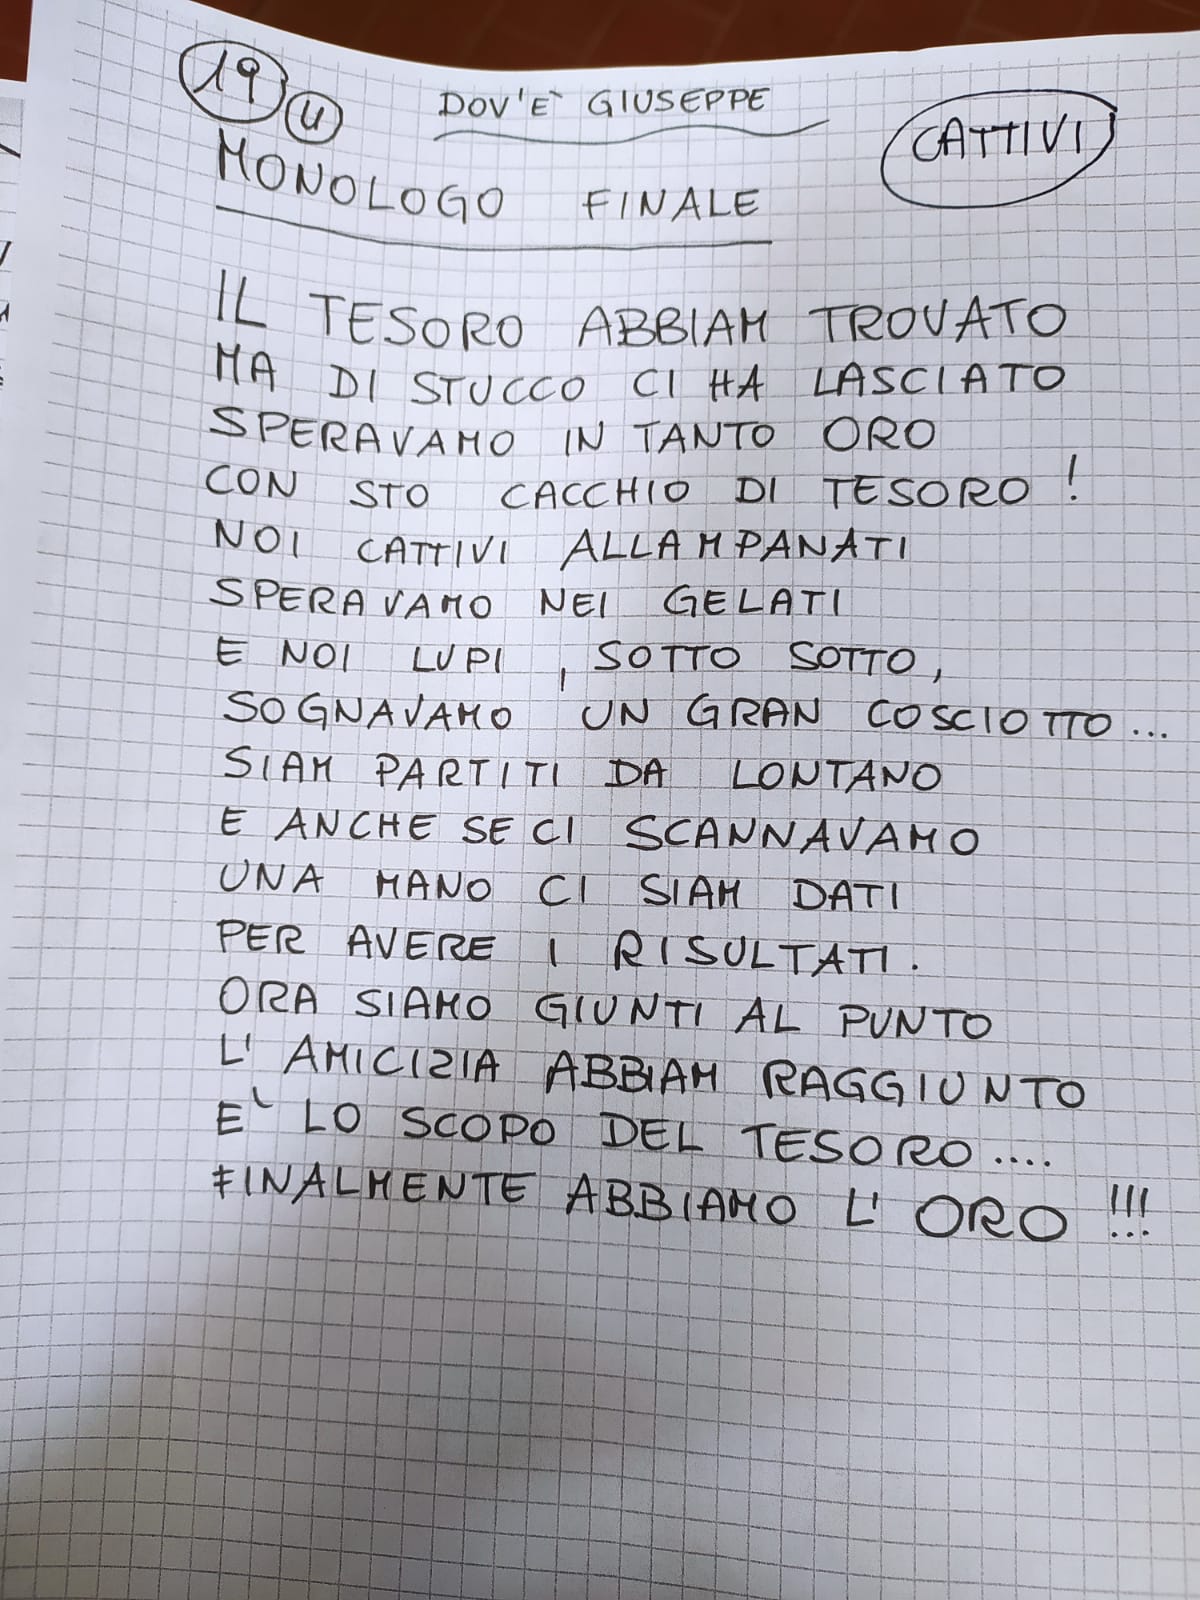 19
4
DOV'È GIUSEPPE
CATTIVI
MONOLOGO FINALE
IL TESORO ABBIAM TROVATO
MA DI STUCCO CI HA LASCIATO
SPERAVAMO IN TANTO ORO
CON STO CACCHIO DI TESORO !
NOI CATTIVI ALLAMPANATI
SPERAVAMO NEI GELATI
E NOI LUPI , SOTTO SOTTO,
SOGNAVAMO UN GRAN COSCIOTTO...
SIAM PARTITI DA LONTANO
E ANCHE SE CI SCANNAVAMO
UNA MANO CI SIAM DATI
PER AVERE I RISULTATI.
ORA SIAMO GIUNTI AL PUNTO
L'AMICIZIA ABBIAM RAGGIUNTO
E' LO SCOPO DEL TESORO....
FINALMENTE ABBIAMO L'ORO !!!